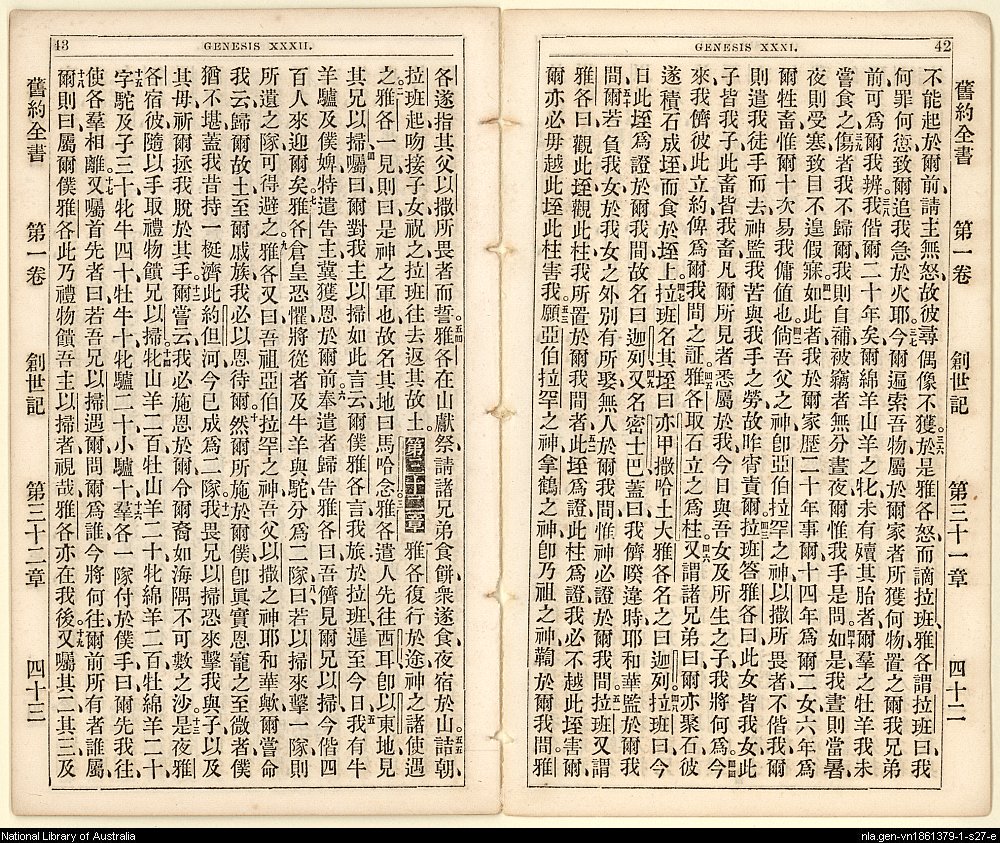 GENESIS XXXI.
42
舊約全書 第一卷 創世記 第三十一章 四十二
不能起於爾前、請主無怒、故彼尋偶像不獲。三六於是雅各怒而謫拉班、雅各謂拉班曰、我
何罪何愆、致爾追我、急於火耶、三七今爾遍索吾物、屬於爾家者、所獲何物、置之爾我兄弟
前、可爲爾我辨、三八我偕爾二十年矣、爾綿羊山羊之牝、未有殰其胎者、爾羣之牡羊、我未
嘗食之、三九傷者我不歸爾、我則自補、被竊者無分晝夜、爾惟我手是問、四十如是我晝則當暑、
夜則受塞、致目不遑假寐、四一如此者、我於爾家歷二十年、事爾十四年、爲爾二女、六年爲
爾牲畜、惟爾十次易我傭値也、四二倘吾父之神、卽亞伯拉罕之神、以撒所畏者、不偕我、
則遣我徒手而去、神監我苦、與我手之勞、故昨宵責爾、四三拉班答雅各曰、此女皆我女、此
子皆我子、此畜皆我畜、凡爾所見者、悉屬於我、今日與吾女、及所生之子、我將何爲、四四今
來、我儕彼此立約、俾爲爾我間之証、四五雅各取石立之爲柱、四六又謂諸兄弟曰、爾亦聚石、彼
遂積石成垤、而食於垤上、四七拉班名其垤曰亦甲撒哈土大、雅各名之曰迦列、四八拉班曰、今
日此垤爲證於爾我間、故名曰迦列、四九又名密士巴、蓋曰我儕暌違時、耶和華監於爾我
間、五十爾若負我女、於我女之外、別有所娶、無人於爾我間、惟神必證於爾我間、五一拉班又謂
雅各曰、觀此垤、觀此柱、我所置於爾我間者、五二此垤爲證、此柱爲證、我必不越此垤害爾、
爾亦必毋越此垤此柱害我、五三願亞伯拉罕之神、拿鶴之神、卽乃祖之神、鞫於爾我間、雅
GENESIS XXXII.
43
各遂指其父以撒所畏者而誓、五四雅各在山獻祭、請諸兄弟食餅、衆遂食、夜宿於山、五五詰朝、
拉班起、吻接子女、祝之、拉班往去、返其故土。
第三十二章 雅各復行於途、神之諸使遇
之、二雅各一見、則曰、是神之軍也、故名其地曰馬哈念、三雅各遣人先往西耳、卽以東地、見
其兄以掃、四囑曰、爾對我主以掃如此言云、爾僕雅各言、我旅於拉班、遲至今日、五我有牛
羊驢及僕婢、特遣告主、冀獲恩於爾前、六奉遣者歸告雅各曰、吾儕見爾兄以掃、今偕四
百人來迎爾矣、七雅各倉皇恐懼、將從者及牛羊與駝、分爲二隊、八曰、若以掃來擊一隊、則
所遺之隊、可得避之、九雅各又曰、吾祖亞伯拉罕之神、吾父以撒之神、耶和華歟、爾嘗命
我云、歸爾故土、至爾戚族、我必以恩待爾、十然爾所施於爾僕、卽眞實恩寵之至微者、僕
猶不堪、蓋我昔持一梃、濟此約但河、今已成爲二隊、十一我畏兄以掃、恐來擊我與子、以及
其母、祈爾拯我脫於其手、十二爾嘗云、我必施恩於爾、令爾裔如海隅不可數之沙、十三是夜雅
各宿彼、隨以手取禮物、饋兄以掃、十四牝山羊二百、牡山羊二十、牝綿羊二百、牡綿羊二十、
十五字駝及子三十、牝牛四十、牡牛十、牝驢二十、小驢十、十六羣各一隊、付於僕手、曰、爾先我往、
使各羣相離、十七又囑首先者曰、若吾兄以掃遇爾、問爾爲誰、今將何往、爾前所有者誰屬、
十八爾則曰、屬爾僕雅各、此乃禮物、饋吾主以掃者、視哉、雅各亦在我後、十九又囑其二其三及
舊約全書 第一卷 創世記 第三十二章 四十三
National Library of Australia
nla.gen-vn1861379-1-s27-e